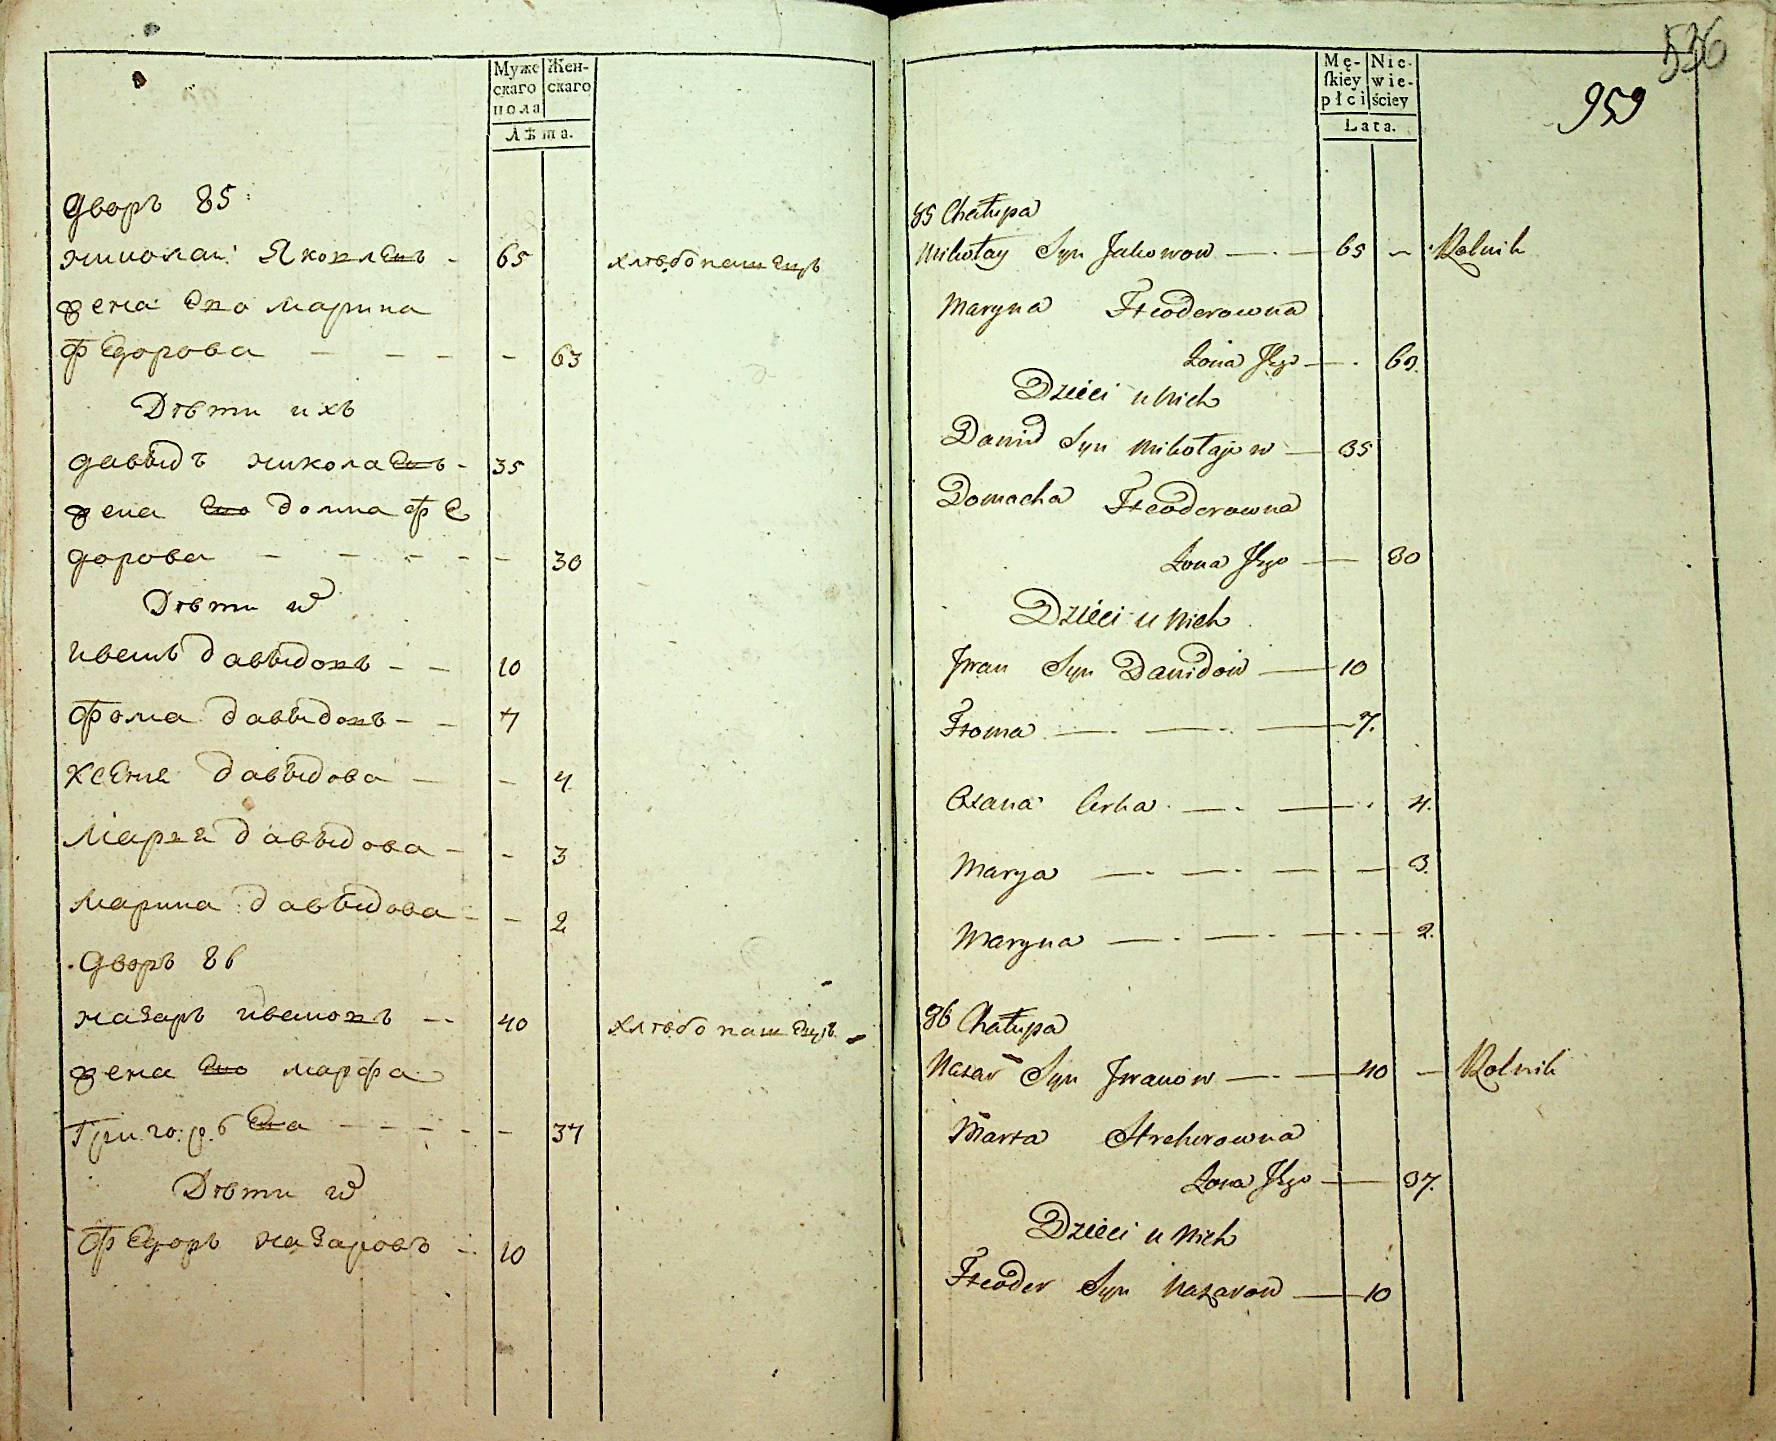 Муже Жен-
скаго скаго
пола
Лѣта.
Дворъ 85
Николай Яковлевъ - 65 хлѣбопашецъ
жена Ево марина
Федорова - - - - 63
Дѣти ихъ
давыдъ николаевъ - 35
жена Ево домна фе
дорова - - - - - 30
Дѣти ѡ
иванъ давыдовъ - - 10
Фома давыдовъ - - 7
Ксения давыдова - - 4
Мария давыдова - - 3
Марина давыдова - - 2
Дворъ 86
назаръ ивановъ - - 40 хлѣбопашецъ
жена Ево марфа
Григорьева - - - - - 37
Дѣти ѡ
Федоръ назаровъ - 10
536
959
Mę- Nie-
skiey wie-
płci ściey
Lata.
85 Chałupa
Mikołay Syn Jakowow - 65 - Rolnik
Maryna Fteoderowna
Żona Jego - 63.
Dzieci u Nich
Dawid Syn Mikołajow - 35
Domacha Fteoderowna
Żona Jego - 30
Dzieci u Nich
Jwan Syn Dawidow - 10
Ftoma - - - 7.
Axana Corka - - 4.
Marya - - - - - 3.
Maryna - - - - 2.
86 Chałupa
Nazar Syn Jwanow - - 40 - Rolnik
Marta
Żona Jego - 37.
Dzieci u Nich
Fteoder Syn Nazarow - 10